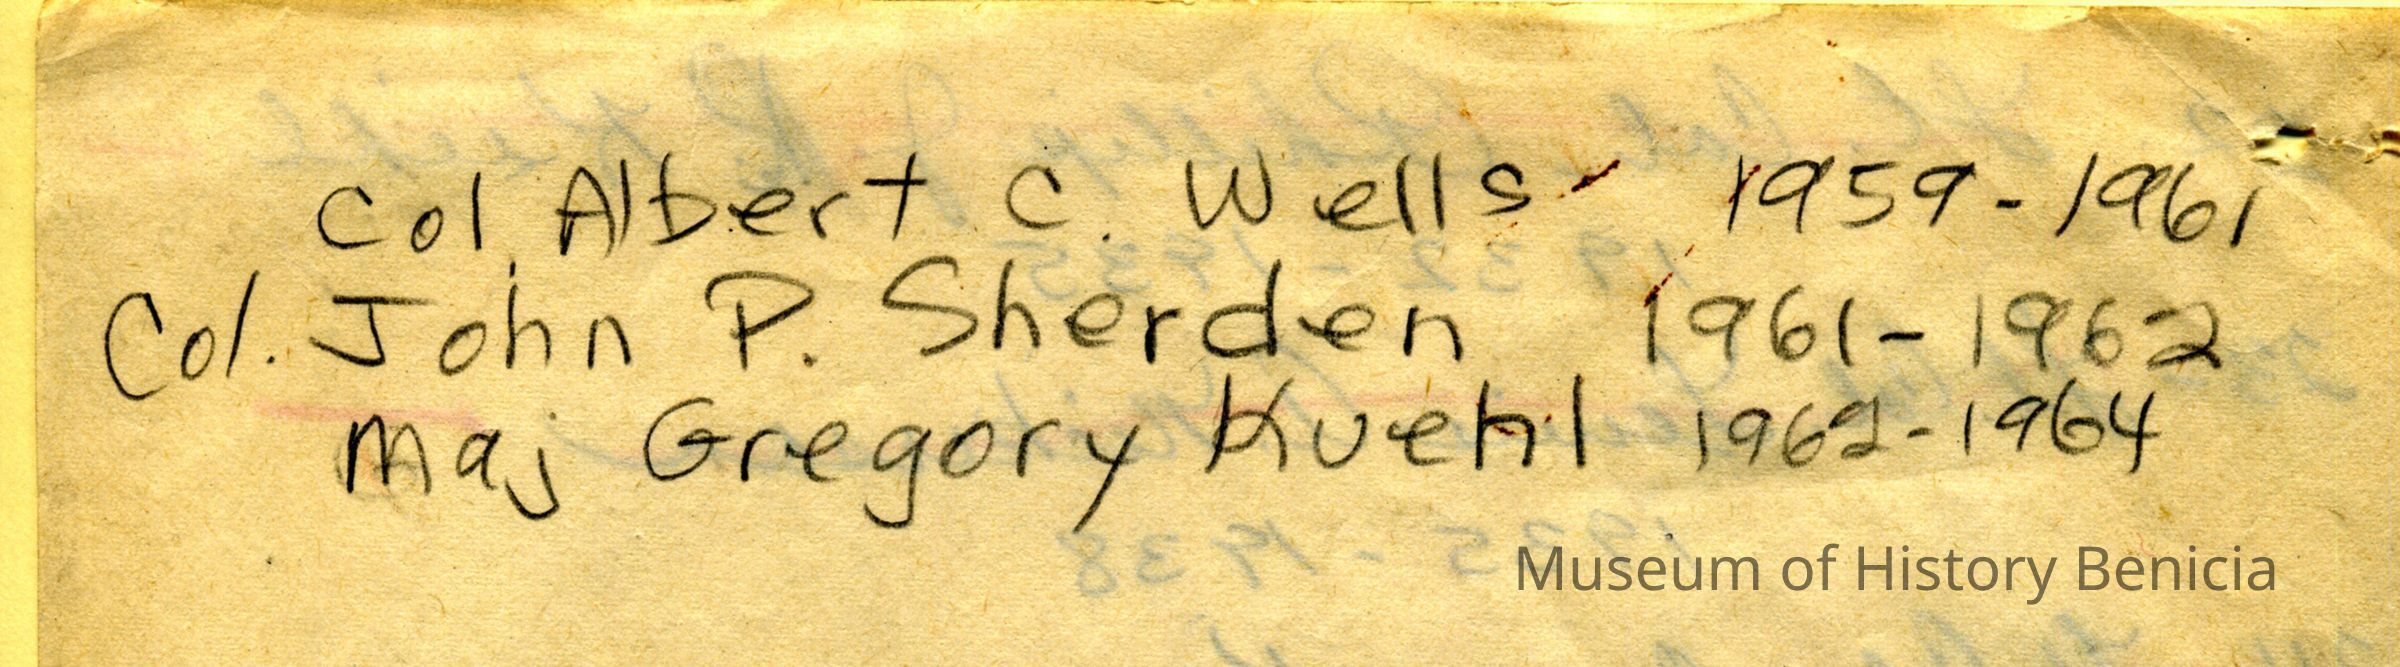 Col Albert C. Wells 1959-1961
Col. John P. Sherden 1961-1962
Maj Gregory Kuehl 1962-1964
1932-1935
1935-1938
Museum of History Benicia